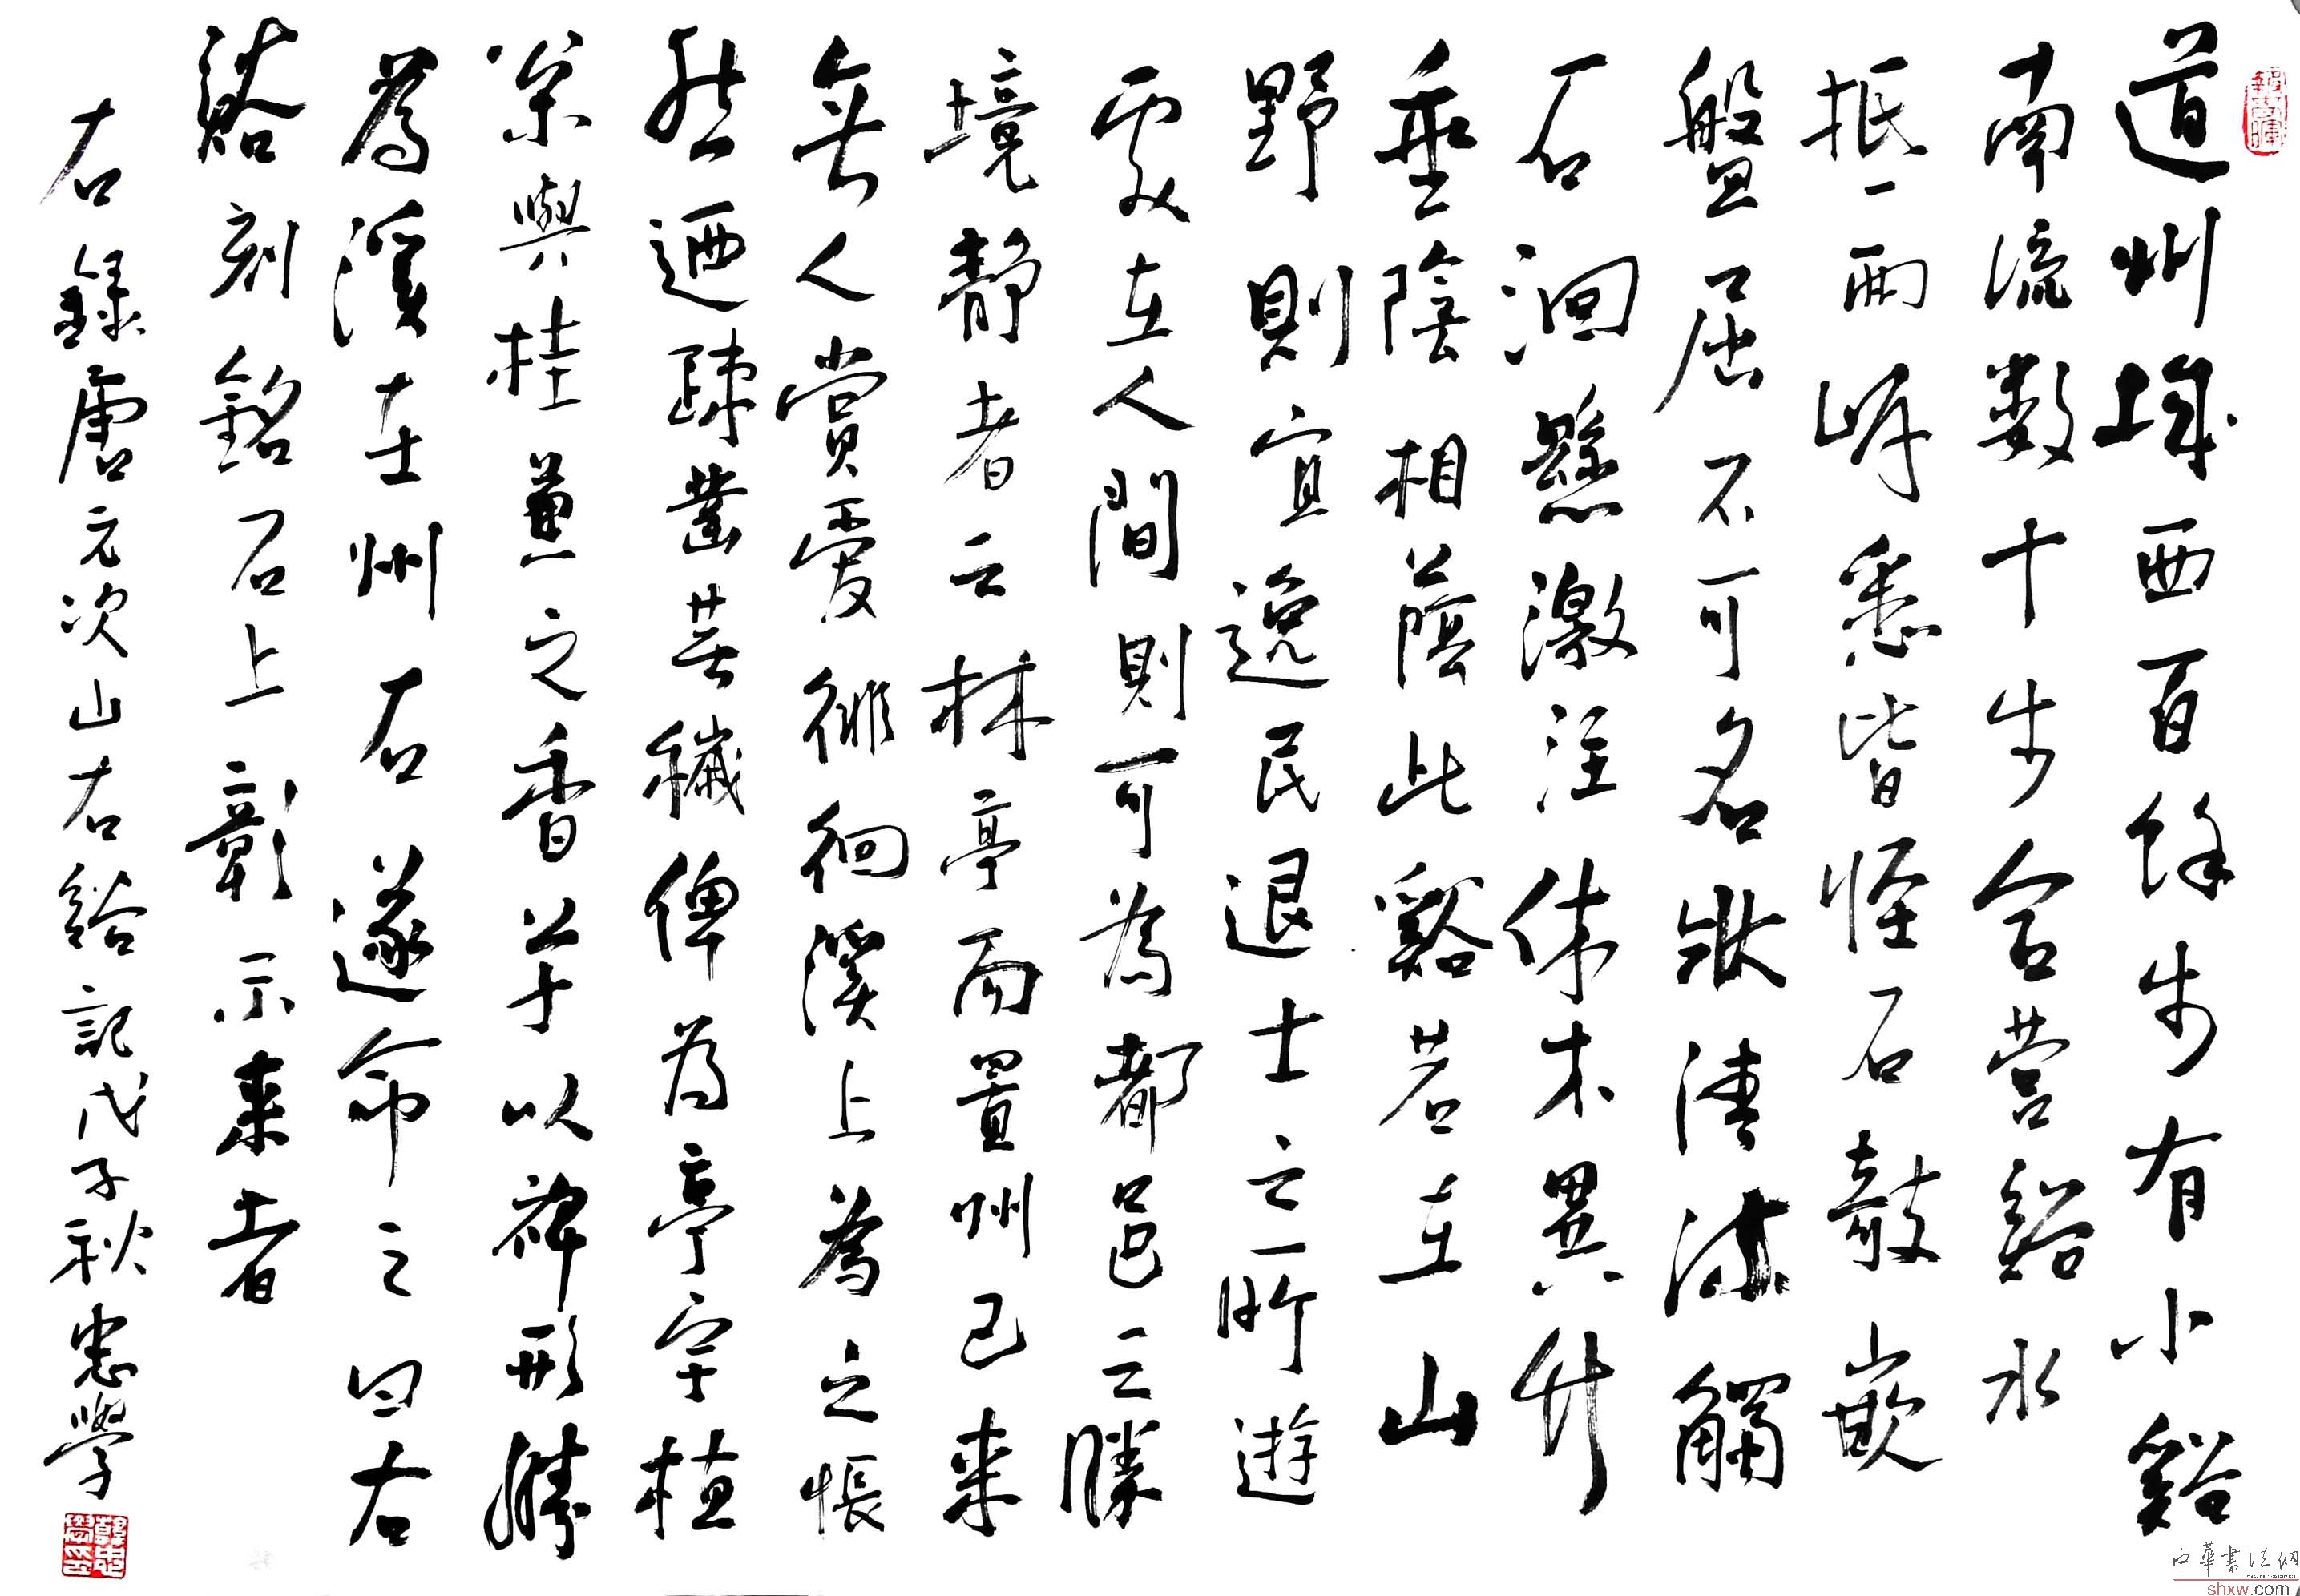 道州城西百餘步有小谿
南流数十步合营谿水
抵兩岸悉皆怪石敧嵌
盤屈不可名狀清流觸
石洄懸激注佳木異竹
垂陰相蔭此谿若在山
野則宜逸民退士之所遊
處在人間則可為都邑之勝
境靜者之林亭而置州已来
無人賞愛徘徊溪上為之悵
然迺疏凿芜穢俾為亭宇植
松與桂兼之香草以裨形勝
為溪在州右遂命之曰右
谿刻銘石上彰示来者
右録唐元次山右谿記戊子秋忠學
中華書法網
shxw.com